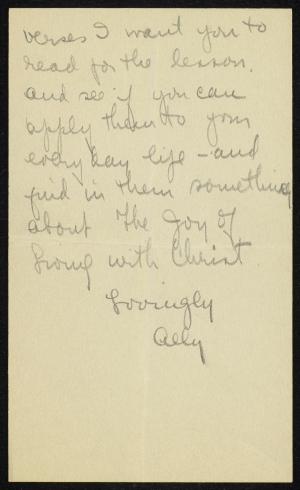 verses I want you to
read for the lesson.
and see if you can
apply them to your
everyday life - and
find in them something
about The Joy of
Living with Christ.
Lovingly